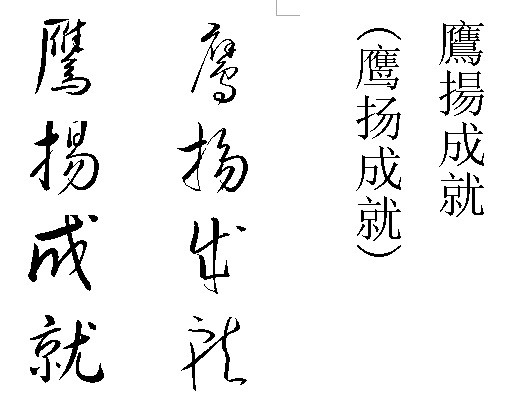 鷹揚成就
（鹰扬成就）
鷹揚成就
鷹揚成就